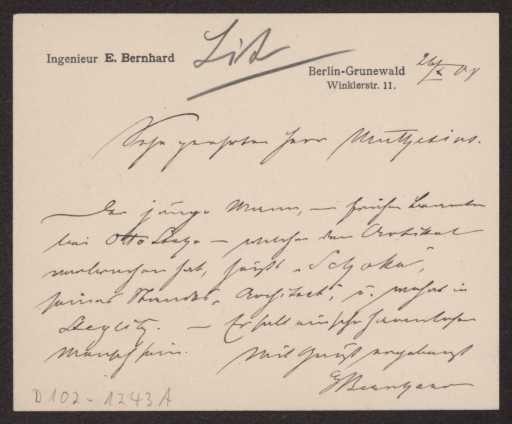 Ingenieur E. Bernhard
Lit
Berlin-Grunewald
Winklerstr. 11.
Sehr geehrter Herr Muthesius.
Der junge Mann, – früher
bei Otto – welcher den Artikel
hat, heißt „
seines Standes „Architekt“, u. wohnt in
Steglitz. – Er soll ein sehr
Mensch sein. Mit Gruß ergebenst
EBernhard
D 102 - 1243 A